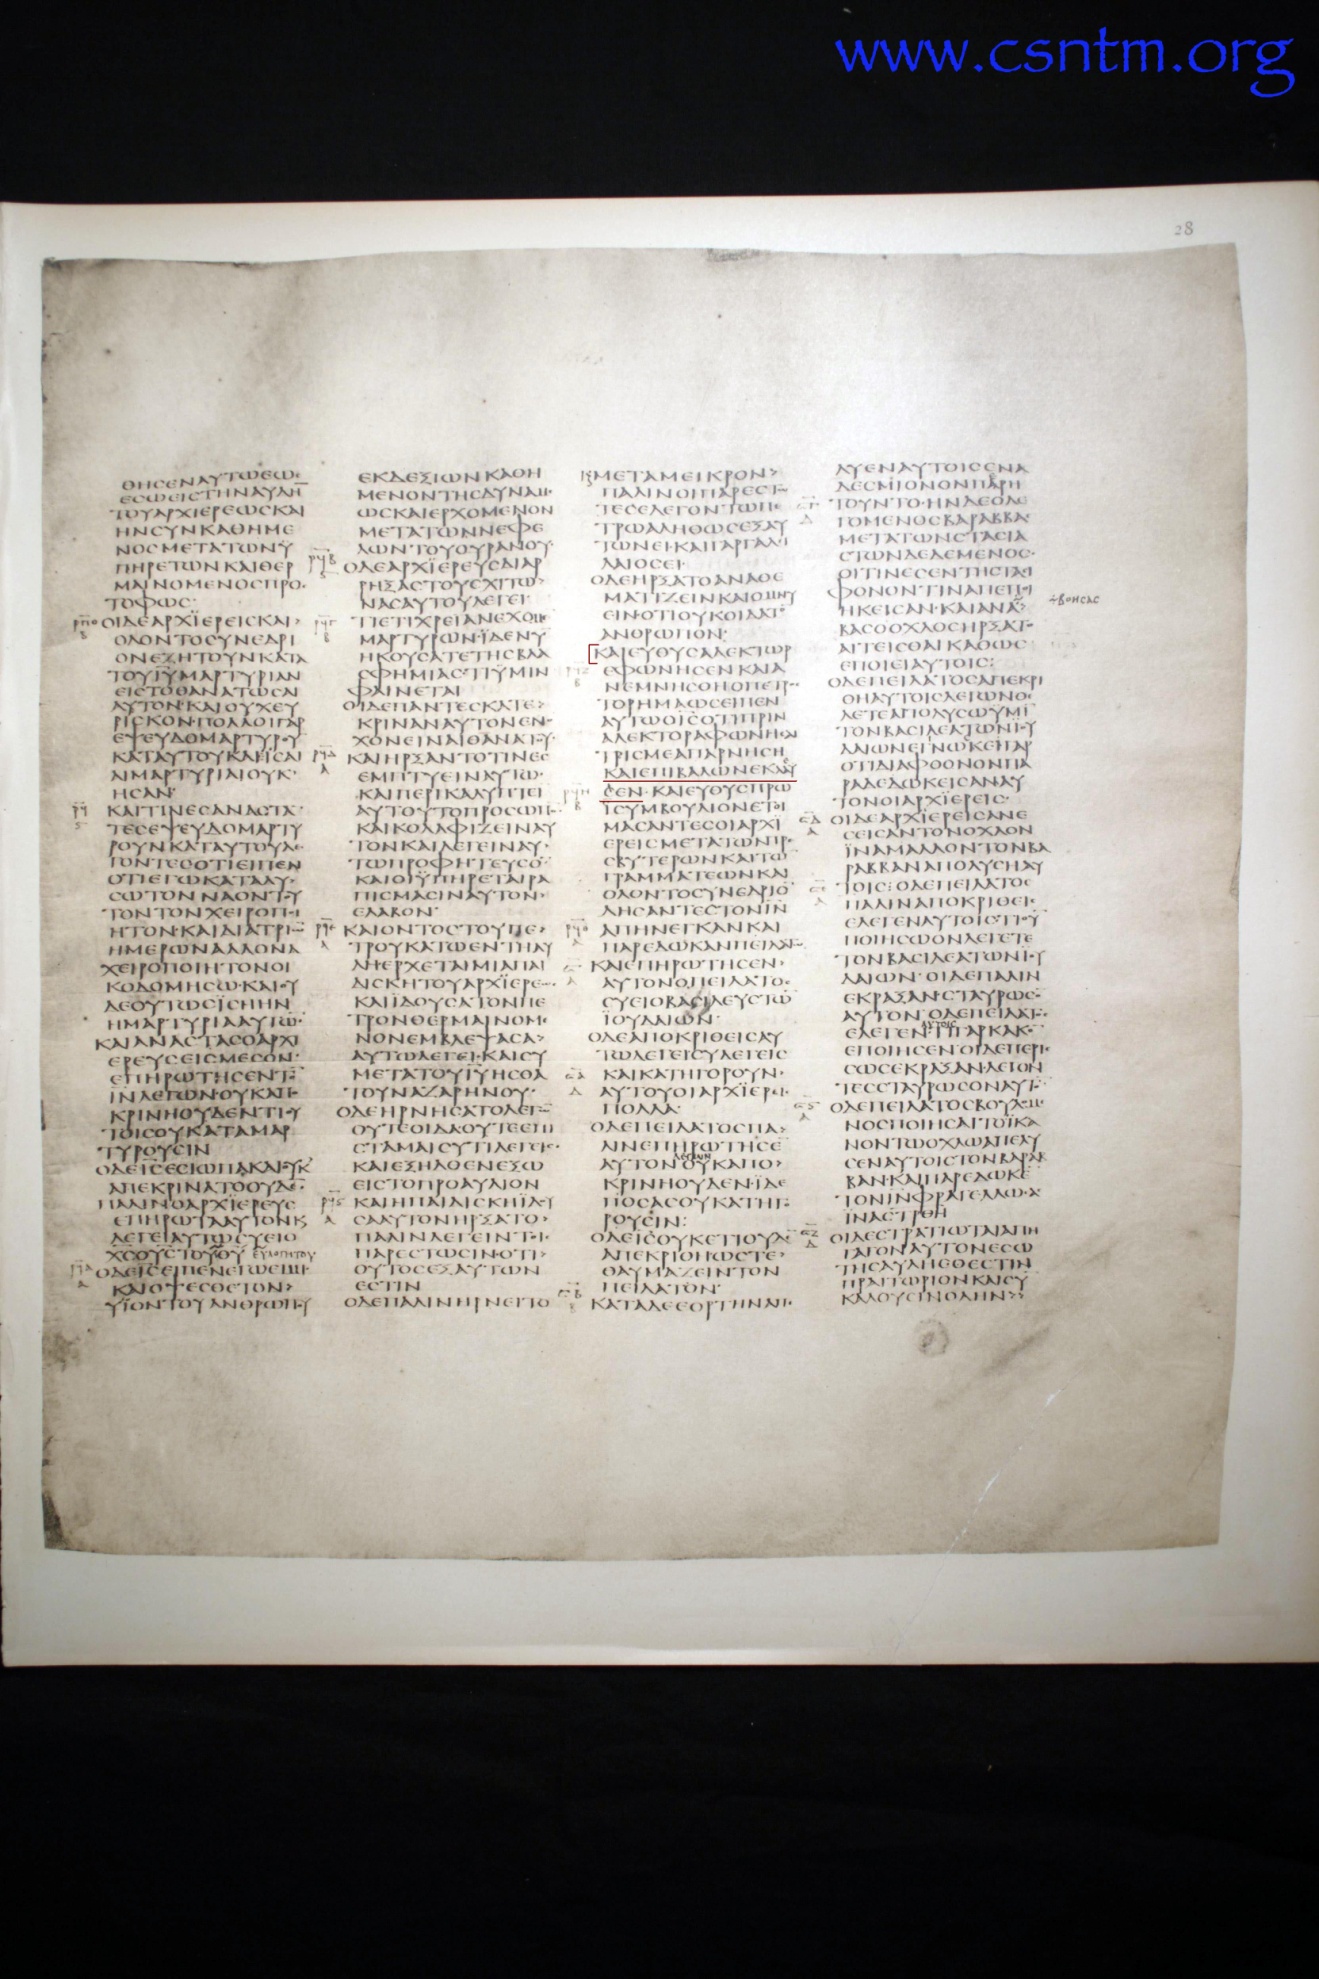 www.csntm.org
28
ΘΗϹΕΝΑΥΤΩΕΩ
ΕϹΩΕΙϹΤΗΝΑΥΛΗ
ΤΟΥΑΡΧΙΕΡΕΩϹΚΑΙ
ΗΝϹΥΝΚΑΘΗΜΕ
ΝΟϹΜΕΤΑΤΩΝΥ
ΠΗΡΕΤΩΝΚΑΙΘΕΡ
ΜΑΙΝΟΜΕΝΟϹΠΡΟ
ΤΟΦΩϹ
ΟΙΔΕΑΡΧΙΕΡΕΙϹΚΑΙ
ΟΛΟΝΤΟϹΥΝΕΔΡΙ
ΟΝΕΖΗΤΟΥΝΚΑΤΑ
ΤΟΥΙΥΜΑΡΤΥΡΙΑΝ
ΕΙϹΤΟΘΑΝΑΤΩϹΑΙ
ΑΥΤΟΝ·ΚΑΙΟΥΧΕΥ
ΡΙϹΚΟΝ·ΠΟΛΛΟΙΓΑΡ
ΕΨΕΥΔΟΜΑΡΤΥΡΟΥ
ΚΑΤΑΥΤΟΥΚΑΙΙϹΑΙ
ΑΙΜΑΡΤΥΡΙΑΙΟΥΚ
ΗϹΑΝ
ΚΑΙΤΙΝΕϹΑΝΑϹΤΑ
ΤΕϹΕΨΕΥΔΟΜΑΡΤΥ
ΡΟΥΝΚΑΤΑΥΤΟΥΛΕ
ΓΟΝΤΕϹΟΤΙΕΙΠΕΝ
ΟΤΙΕΓΩΚΑΤΑΛΥ
ϹΩΤΟΝΝΑΟΝΤΟΥ
ΤΟΝΤΟΝΧΕΙΡΟΠΟΙ
ΗΤΟΝ·ΚΑΙΔΙΑΤΡΙ
ΗΜΕΡΩΝΑΛΛΟΝΑ
ΧΕΙΡΟΠΟΙΗΤΟΝΟΙ
ΚΟΔΟΜΗϹΩ·ΚΑΙΟΥ
ΔΕΟΥΤΩϹΙϹΗΗΝ
ΗΜΑΡΤΥΡΙΑΑΥΤΩ
ΚΑΙΑΝΑϹΤΑϹΟΑΡΧΙ
ΕΡΕΥϹΕΙϹΜΕϹΟΝ
ΕΠΗΡΩΤΗϹΕΝΤΟ
ΙΝΛΕΓΩΝ·ΟΥΚΑΠΟ
ΚΡΙΝΗΟΥΔΕΝΤΙΟΥ
ΤΟΙϹΟΥΚΑΤΑΜΑΡ
ΤΥΡΟΥϹΙΝ
ΟΔΕΙϹΕϹΙΩΠΑΚΑΙΟΥΚ
ΑΠΕΚΡΙΝΑΤΟΟΥΔΕ
ΠΑΛΙΝΟΑΡΧΙΕΡΕΥϹ
ΕΠΗΡΩΤΑΑΥΤΟΝΚ
ΛΕΓΕΙΑΥΤΩϹΥΕΙΟ
ΧϹΟΥϹΤΟΥΘΥ ΕΥΛΟΓΗΤΟΥ
ΟΔΕΙϹΕΙΠΕΝΕΓΩΕΙΜΙ
ΚΑΙΟΨΕϹΘΕΤΟΝ>
ΥΙΟΝΤΟΥΑΝΘΡΩΠΟΥ
ΕΚΔΕΞΙΩΝΚΑΘΗ
ΜΕΝΟΝΤΗϹΔΥΝΑΜ
ΩϹΚΑΙΕΡΧΟΜΕΝΟΝ
ΜΕΤΑΤΩΝΝΕΦΕ
ΛΩΝΤΟΥΟΥΡΑΝΟΥ
ΟΔΕΑΡΧΙΕΡΕΥϹΔΙΑΡ
ΡΗΞΑϹΤΟΥϹΧΙΤΩ>
ΝΑϹΑΥΤΟΥΛΕΓΕΙ
ΤΙΕΤΙΧΡΕΙΑΝΕΧΟΜΕ
ΜΑΡΤΥΡΩΝ·ΙΔΕΝΥ
ΗΚΟΥϹΑΤΕΤΗϹΒΛΑ
ϹΦΗΜΙΑϹ·ΤΙΥΜΙΝ
ΦΑΙΝΕΤΑΙ
ΟΙΔΕΠΑΝΤΕϹΚΑΤΕ>
ΚΡΙΝΑΝΑΥΤΟΝΕΝ
ΧΟΝΕΙΝΑΙΘΑΝΑΤΟΥ
ΚΑΙΗΡΞΑΝΤΟΤΙΝΕϹ
ΕΜΠΤΥΕΙΝΑΥΤΩ
ΚΑΙΠΕΡΙΚΑΛΥΠΤΕΙ
ΑΥΤΟΥΤΟΠΡΟϹΩΠΟ
ΚΑΙΚΟΛΑΦΙΖΕΙΝΑΥ
ΤΟΝΚΑΙΛΕΓΕΙΝΑΥ
ΤΩΠΡΟΦΗΤΕΥϹΟ
ΚΑΙΟΙΥΠΗΡΕΤΑΙΡΑ
ΠΙϹΜΑϹΙΝΑΥΤΟΝ
ΕΛΑΒΟΝ
ΚΑΙΟΝΤΟϹΤΟΥΠΕ>
ΤΡΟΥΚΑΤΩΕΝΤΗΑΥ
ΛΗΕΡΧΕΤΑΙΜΙΑΠΑΙ
ΔΙϹΚΗΤΟΥΑΡΧΙΕΡΕ
ΚΑΙΙΔΟΥϹΑΤΟΝΠΕ
ΤΡΟΝΘΕΡΜΑΙΝΟΜΕ
ΝΟΝΕΜΒΛΕΨΑϹΑ>
ΑΥΤΩΛΕΓΕΙ·ΚΑΙϹΥ
ΜΕΤΑΤΟΥΙΥΗϹΘΑ
ΤΟΥΝΑΖΑΡΗΝΟΥ
ΟΔΕΗΡΝΗϹΑΤΟΛΕΓΩ
ΟΥΤΕΟΙΔΑΟΥΤΕΕΠΙ
ϹΤΑΜΑΙϹΥΤΙΛΕΓΕΙϹ
ΚΑΙΕΞΗΛΘΕΝΕΞΩ
ΕΙϹΤΟΠΡΟΑΥΛΙΟΝ
ΚΑΙΗΠΑΙΔΙϹΚΗΙΔΟΥ
ϹΑΑΥΤΟΝΗΡΞΑΤΟ>
ΠΑΛΙΝΛΕΓΕΙΝΤΟΙ
ΠΑΡΕϹΤΩϹΙΝ·ΟΤΙ>
ΟΥΤΟϹΕΞΑΥΤΩΝ
ΕϹΤΙΝ
ΟΔΕΠΑΛΙΝΗΡΝΕΙΤΟ
ΜΕΤΑΜΕΙΚΡΟΝ>
ΠΑΛΙΝΟΙΠΑΡΕϹΤΩ
ΤΕϹΕΛΕΓΟΝΤΩΠΕ
ΤΡΩΑΛΗΘΩϹΕΞΑΥ
ΤΩΝΕΙ·ΚΑΙΓΑΡΓΑΛΙ
ΛΑΙΟϹΕΙ
ΟΔΕΗΡΞΑΤΟΑΝΑΘΕ
ΜΑΤΙΖΕΙΝΚΑΙΟΜΝΥ
ΕΙΝ·ΟΤΙΟΥΚΟΙΔΑΤΟ
ΑΝΘΡΩΠΟΝ:
ΚΑΙΕΥΘΥϹΑΛΕΚΤΩΡ
ΕΦΩΝΗϹΕΝΚΑΙΑ
ΝΕΜΝΗϹΘΗΟΠΕΤΡΟ
ΤΟΡΗΜΑΩϹΕΙΠΕΝ
ΑΥΤΩΟΙϹΟΤΙΠΡΙΝ
ΑΛΕΚΤΟΡΑΦΩΝΗϹΑΙ
ΤΡΙϹΜΕΑΠΑΡΝΗϹΗ
ΚΑΙΕΠΙΒΑΛΩΝΕΚΛΑΥ
ϹΕΝ·ΚΑΙΕΥΘΥϹΠΡΩ
ΙϹΥΜΒΟΥΛΙΟΝΕΤΟΙ
ΜΑϹΑΝΤΕϹΟΙΑΡΧΙ
ΕΡΕΙϹΜΕΤΑΤΩΝΠΡΕ
ϹΒΥΤΕΡΩΝΚΑΙΤΩ
ΓΡΑΜΜΑΤΕΩΝΚΑΙ
ΟΛΟΝΤΟϹΥΝΕΔΡΙΟ
ΔΗϹΑΝΤΕϹΤΟΝΙΝ
ΑΠΗΝΕΓΚΑΝΚΑΙ
ΠΑΡΕΔΩΚΑΝΠΕΙΛΑΤΩ
ΚΑΙΕΠΗΡΩΤΗϹΕΝ>
ΑΥΤΟΝΟΠΕΙΛΑΤΟϹ
ϹΥΕΙΟΒΑϹΙΛΕΥϹΤΩ
ΙΟΥΔΑΙΩΝ
ΟΔΕΑΠΟΚΡΙΘΕΙϹΑΥ
ΤΩΛΕΓΕΙϹΥΛΕΓΕΙϹ
ΚΑΙΚΑΤΗΓΟΡΟΥΝ
ΑΥΤΟΥΟΙΑΡΧΙΕΡΕΙϹ
ΠΟΛΛΑ
ΟΔΕΠΕΙΛΑΤΟϹΠΑ>
ΛΙΝΕΠΗΡΩΤΗϹΕ
ΑΥΤΟΝΟΥΚΑΠΟ>
ΚΡΙΝΗΟΥΔΕΝ·ΙΔΕ
ΠΟϹΑϹΟΥΚΑΤΗΓΟ
ΡΟΥϹΙΝ:
ΟΔΕΙϹΟΥΚΕΤΙΟΥΔΕ
ΑΠΕΚΡΙΘΗΩϹΤΕ>
ΘΑΥΜΑΖΕΙΝΤΟΝ
ΠΕΙΛΑΤΟΝ
ΚΑΤΑΔΕΕΟΡΤΗΝΑΠΕ
ΛΥΕΝΑΥΤΟΙϹΕΝΑ
ΔΕϹΜΙΟΝΟΝΠΑΡΗ
ΤΟΥΝΤΟ·ΗΝΔΕΟΛΕ
ΓΟΜΕΝΟϹΒΑΡΑΒΒΑϹ
ΜΕΤΑΤΩΝϹΤΑϹΙΑ
ϹΤΩΝΔΕΔΕΜΕΝΟϹ
ΟΙΤΙΝΕϹΕΝΤΗϹΤΑϹΙ
ΦΟΝΟΝΤΙΝΑΠΕΠΟΙ
ΗΚΕΙϹΑΝ·ΚΑΙΑΝΑ ΒΟΗϹΑϹ
ΒΑϹΟΟΧΛΟϹΗΡΞΑΤΟ
ΑΙΤΕΙϹΘΑΙΚΑΘΩϹ
ΕΠΟΙΕΙΑΥΤΟΙϹ:
ΟΔΕΠΕΙΛΑΤΟϹΑΠΕΚΡΙ
ΘΗΑΥΤΟΙϹΛΕΓΩΝΘΕ
ΛΕΤΕΑΠΟΛΥϹΩΥΜΙ
ΤΟΝΒΑϹΙΛΕΑΤΩΝΙΟΥ
ΔΑΙΩΝΕΓΙΝΩΚΕΙΓΑΡ
ΟΤΙΔΙΑΦΘΟΝΟΝΠΑ
ΡΑΔΕΔΩΚΕΙϹΑΝΑΥ
ΤΟΝΟΙΑΡΧΙΕΡΕΙϹ
ΟΙΔΕΑΡΧΙΕΡΕΙϹΑΝΕ
ϹΕΙϹΑΝΤΟΝΟΧΛΟΝ
ΙΝΑΜΑΛΛΟΝΤΟΝΒΑ
ΡΑΒΒΑΝΑΠΟΛΥϹΗΑΥ
ΤΟΙϹ:ΟΔΕΠΕΙΛΑΤΟϹ
ΠΑΛΙΝΑΠΟΚΡΙΘΕΙϹ
ΕΛΕΓΕΝΑΥΤΟΙϹ·ΤΙΟΥ
ΠΟΙΗϹΩΟΝΛΕΓΕΤΕ
ΤΟΝΒΑϹΙΛΕΑΤΩΝΙΟΥ
ΔΑΙΩΝ·ΟΙΔΕΠΑΛΙΝ
ΕΚΡΑΞΑΝ·ϹΤΑΥΡΩϹΟ
ΑΥΤΟΝ·ΟΔΕΠΕΙΛΑΤΟ
ΕΛΕΓΕΝ·ΤΙΓΑΡΚΑΚΟ
ΕΠΟΙΗϹΕΝ·ΟΙΔΕΠΕΡΙϹ
ϹΩϹΕΚΡΑΞΑΝ·ΛΕΓΟΝ
ΤΕϹϹΤΑΥΡΩϹΟΝΑΥΤΟ
ΟΔΕΠΕΙΛΑΤΟϹΒΟΥΛΟΜΕ
ΝΟϹΠΟΙΗϹΑΙΤΟΙΚΑ
ΝΟΝΤΩΟΧΛΩΑΠΕΛΥ
ϹΕΝΑΥΤΟΙϹΤΟΝΒΑΡΑΒ
ΒΑΝ·ΚΑΙΠΑΡΕΔΩΚΕ
ΤΟΝΙΝΦΡΑΓΕΛΛΩϹΑ
ΙΝΑϹΤΡΘΗ
ΟΙΔΕϹΤΡΑΤΙΩΤΑΙΑΠΗ
ΓΑΓΟΝΑΥΤΟΝΕϹΩ
ΤΗϹΑΥΛΗϹΟΕϹΤΙΝ
ΠΡΑΙΤΩΡΙΟΝΚΑΙϹΥ
ΚΑΛΟΥϹΙΝΟΛΗΝ>>